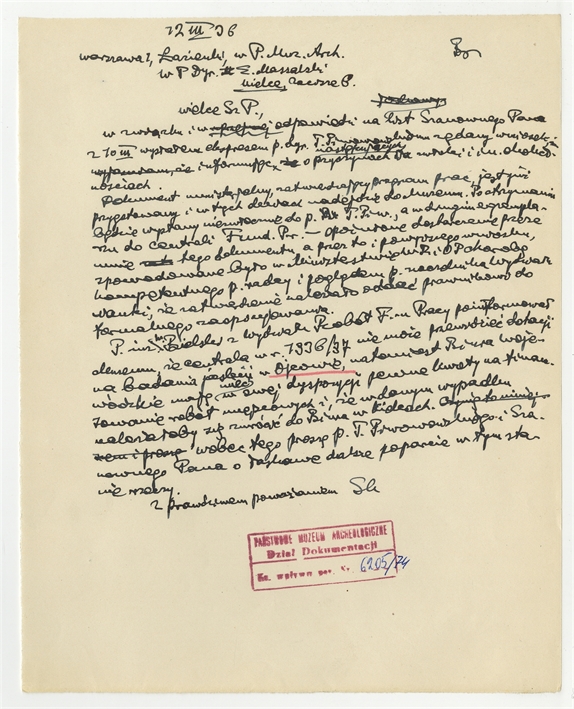 12 III 36
Warszawa, Łazienki, w P. Muz. Arch.
W P Dyr. E. Massalski
Kielce, Zacisze 6.
Wielce Sz P.,
w związku i w odpowiedzi na list Szanownego Pana
z 10 III wysłałem ekspresem p. dyr. T. żądany wniosek
informując o przyczynach zwłoki i in. okolicz-
nościach.
Dokument ministerialny, zatwierdzający program prac, jest już
przygotowany i w tych dniach nadejdzie do Muzeum. Po otrzymaniu
będzie wysłany niezwłocznie do p. T. Prw., a w drugim egzempla-
rzu do centrali Fund. Pr. – opóźnione dostarczenie przeze
mnie tego dokumentu a przez to i powyższego wniosku,
spowodowane było w Ministerstwie chorobą
kompetentnego p. radcy i poglądem p. naczelnika Wydziału
Nauki, że zatwierdzenie należało oddać prawnikowi do
formalnego zaopiniowania.
P. inż. Bielski z Wydziału Robót F-m Pracy poinformował
że centrala w r. 1936/37 nie może przewidzieć dotacji
na badania jaskiń w Ojcowie, natomiast Biura woje-
wódzkie mają mieć w swej dyspozycji pewne kwoty na finan-
sowanie robót miejscowych i, że w danym wypadku
należałoby się zwrócić do Biura w Kielcach.
wobec tego proszę p. T. Prwowowskiego i Sza-
nownego Pana o łaskawe dalsze poparcie w tym sta-
nie rzeczy.
z prawdziwem poważaniem SK
PAŃSTWOWE MUZEUM ARCHEOLOGICZNE
Dział Dokumentacji
Ks. wpływu poz. Nr. 6205/74